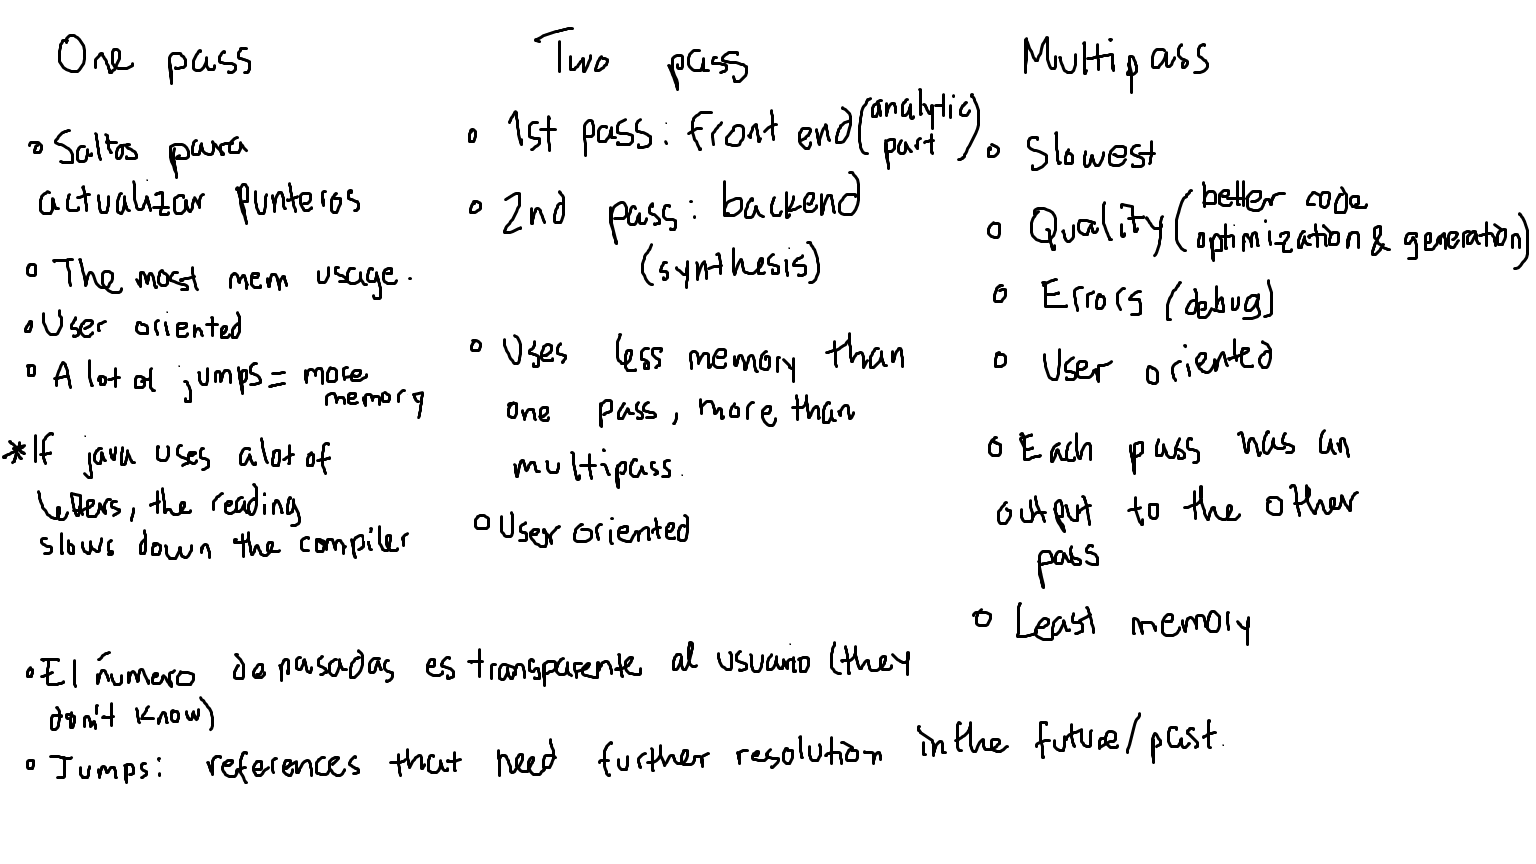 One pass
• Saltos para
actualizar punteros
• The most mem usage.
• User oriented
• A lot of jumps = more
memory
*If java uses a lot of
letters, the reading
slows down the compiler
Two pass
• 1st pass: front end (analytic
part)
• 2nd pass: backend
(synthesis)
• Uses less memory than
one pass, more than
multipass.
• User oriented
Multipass
• Slowest
• Quality (better code
optimization & generation)
• Errors (debug)
• User oriented
• Each pass has an
output to the other
pass
• Least memory
• El número de pasadas es transparente al usuario (they
don't know)
• Jumps: references that need further resolution in the future/past.